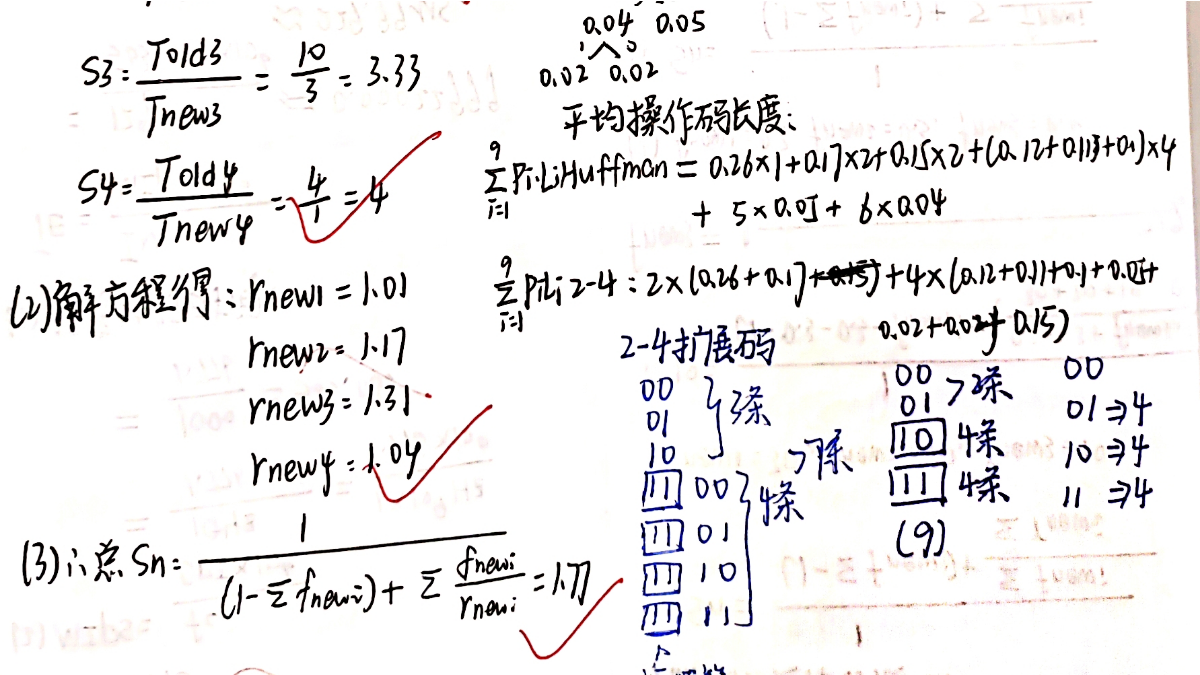 S3 = Told3 / Tnew3 = 10 / 3 = 3.33
S4 = Told4 / Tnew4 = 4 / 1 = 4
(2)解方程得: rnew1 = 1.01
rnew2 = 1.17
rnew3 = 1.31
rnew4 = 1.04
(3)∴总Sn = 1 / ((1-Σfnewi) + Σ fnewi / rnewi) = 1.77
0.04 0.05
1 0
0.02 0.02
平均操作码长度:
9 Σ i=1 Pi·LiHuffman = 0.26×1+0.17×2+0.15×2+(0.12+0.113+0.1)×4
+ 5×0.05 + 6×0.04
9 Σ i=1 PiLi 2-4 : 2×(0.26+0.17+0.15)+4×(0.12+0.11+0.1+0.05+
0.02+0.02+0.15)
2-4扩展码
00
01
10
3条
11 00
11 01
11 10
11 11
4条
>7条
00
01
>2条
10 4条
11 4条
(9)
00
01 ⇒4
10 ⇒4
11 ⇒4